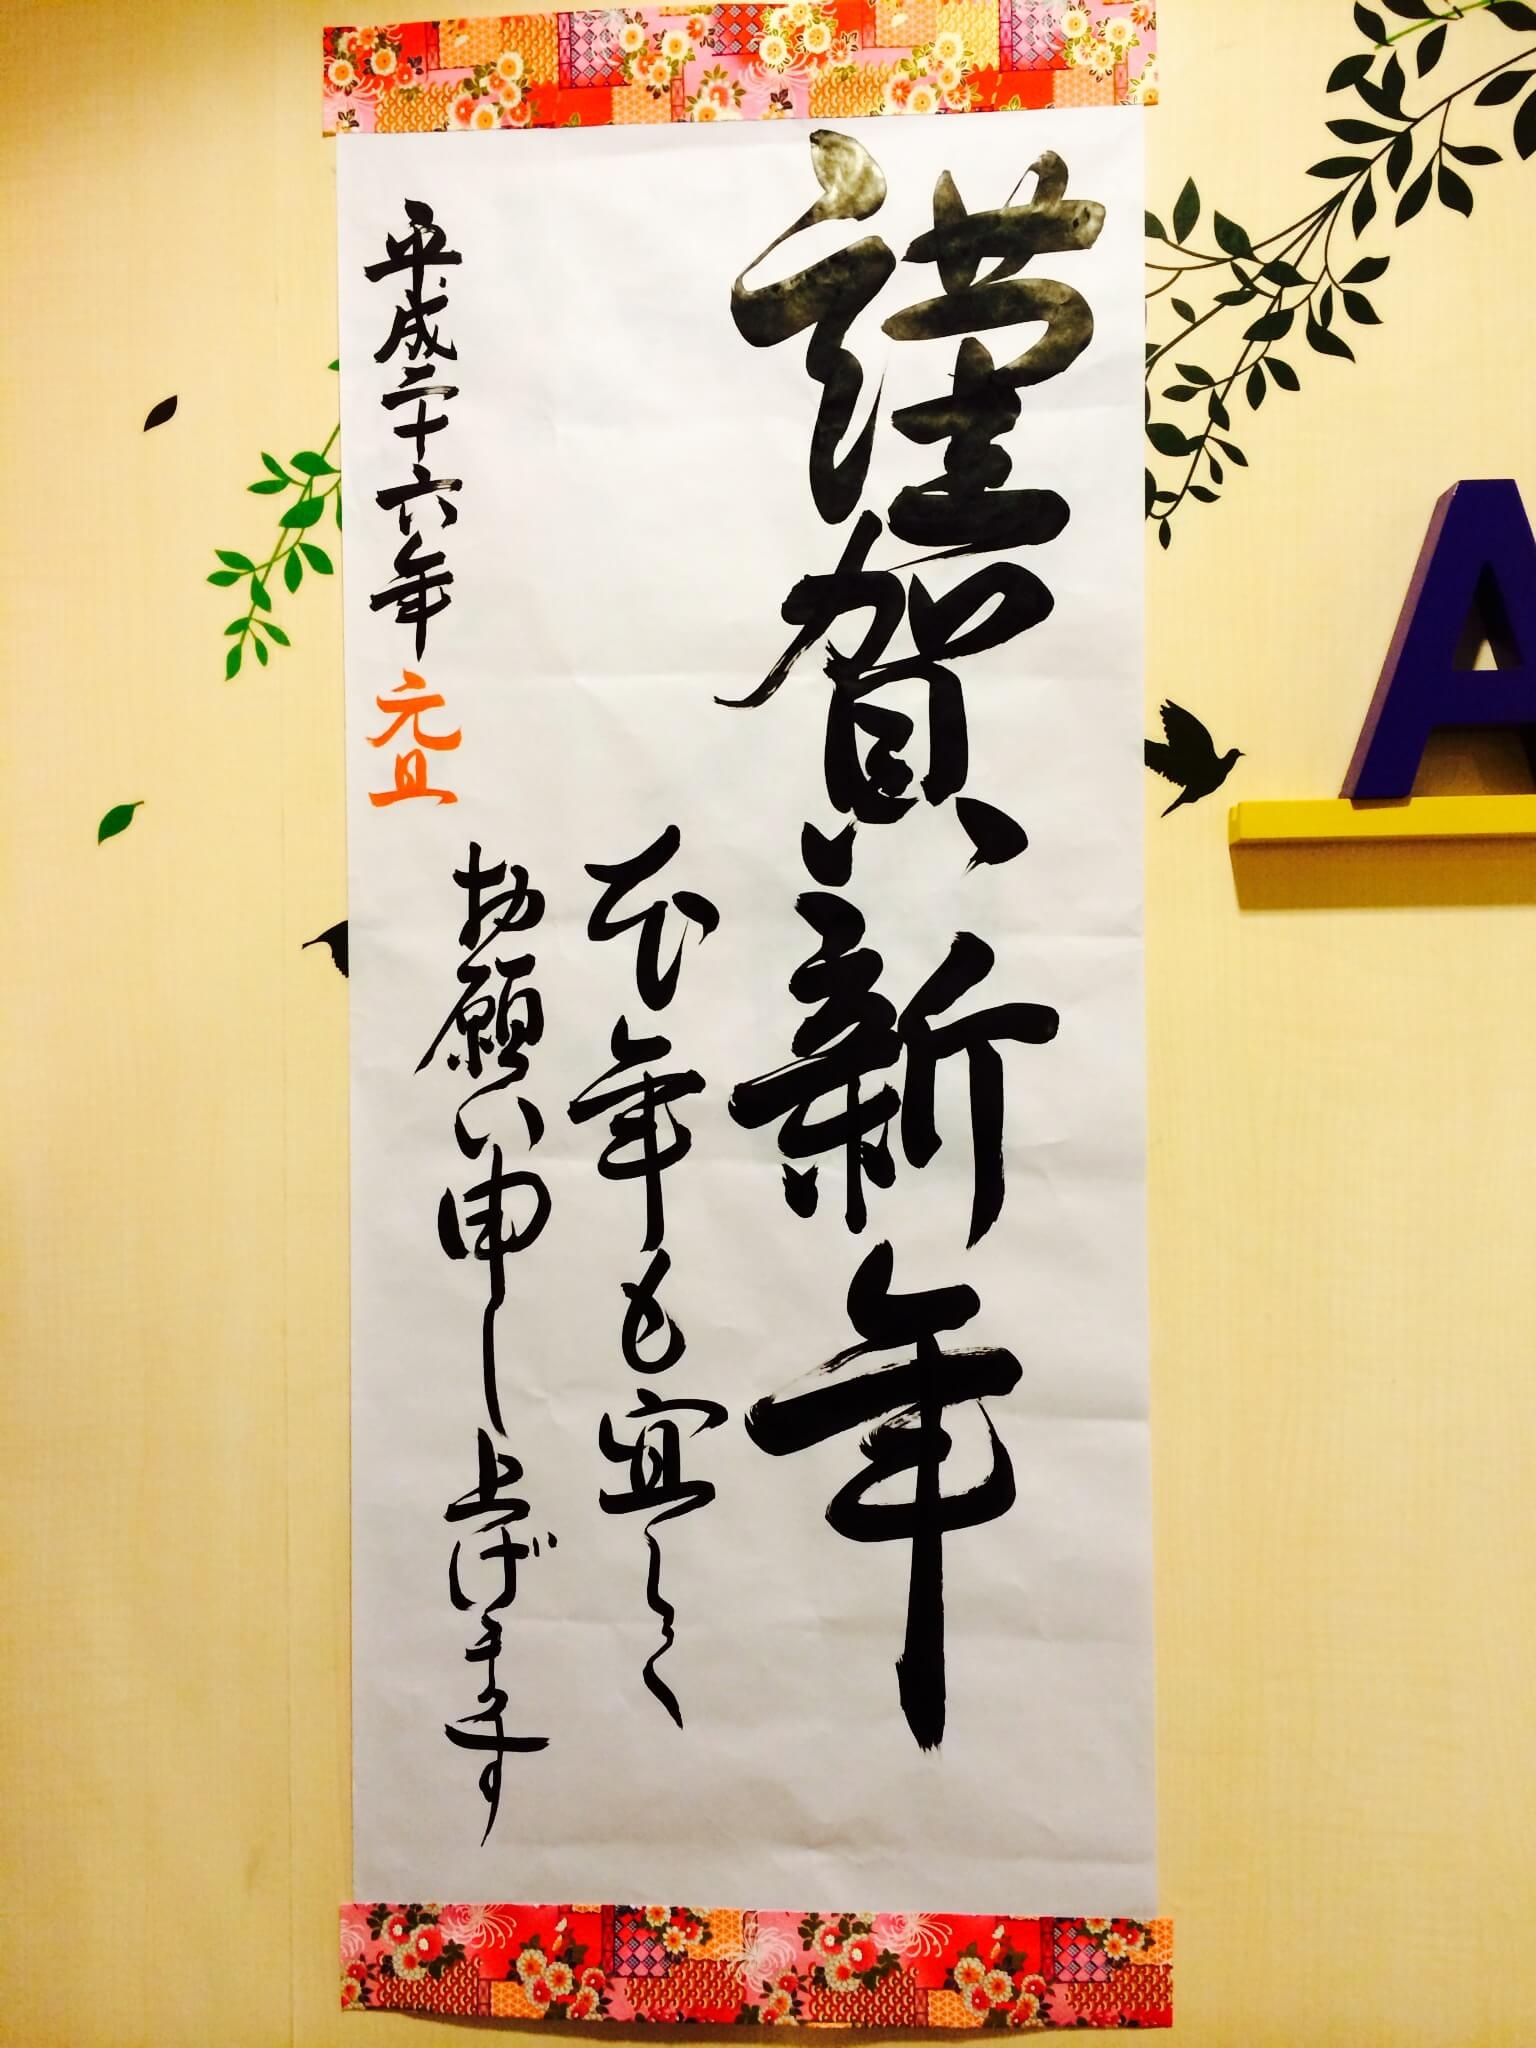 謹賀新年
本年も宜しく
お願い申し上げます
平成二十六年 元旦
A